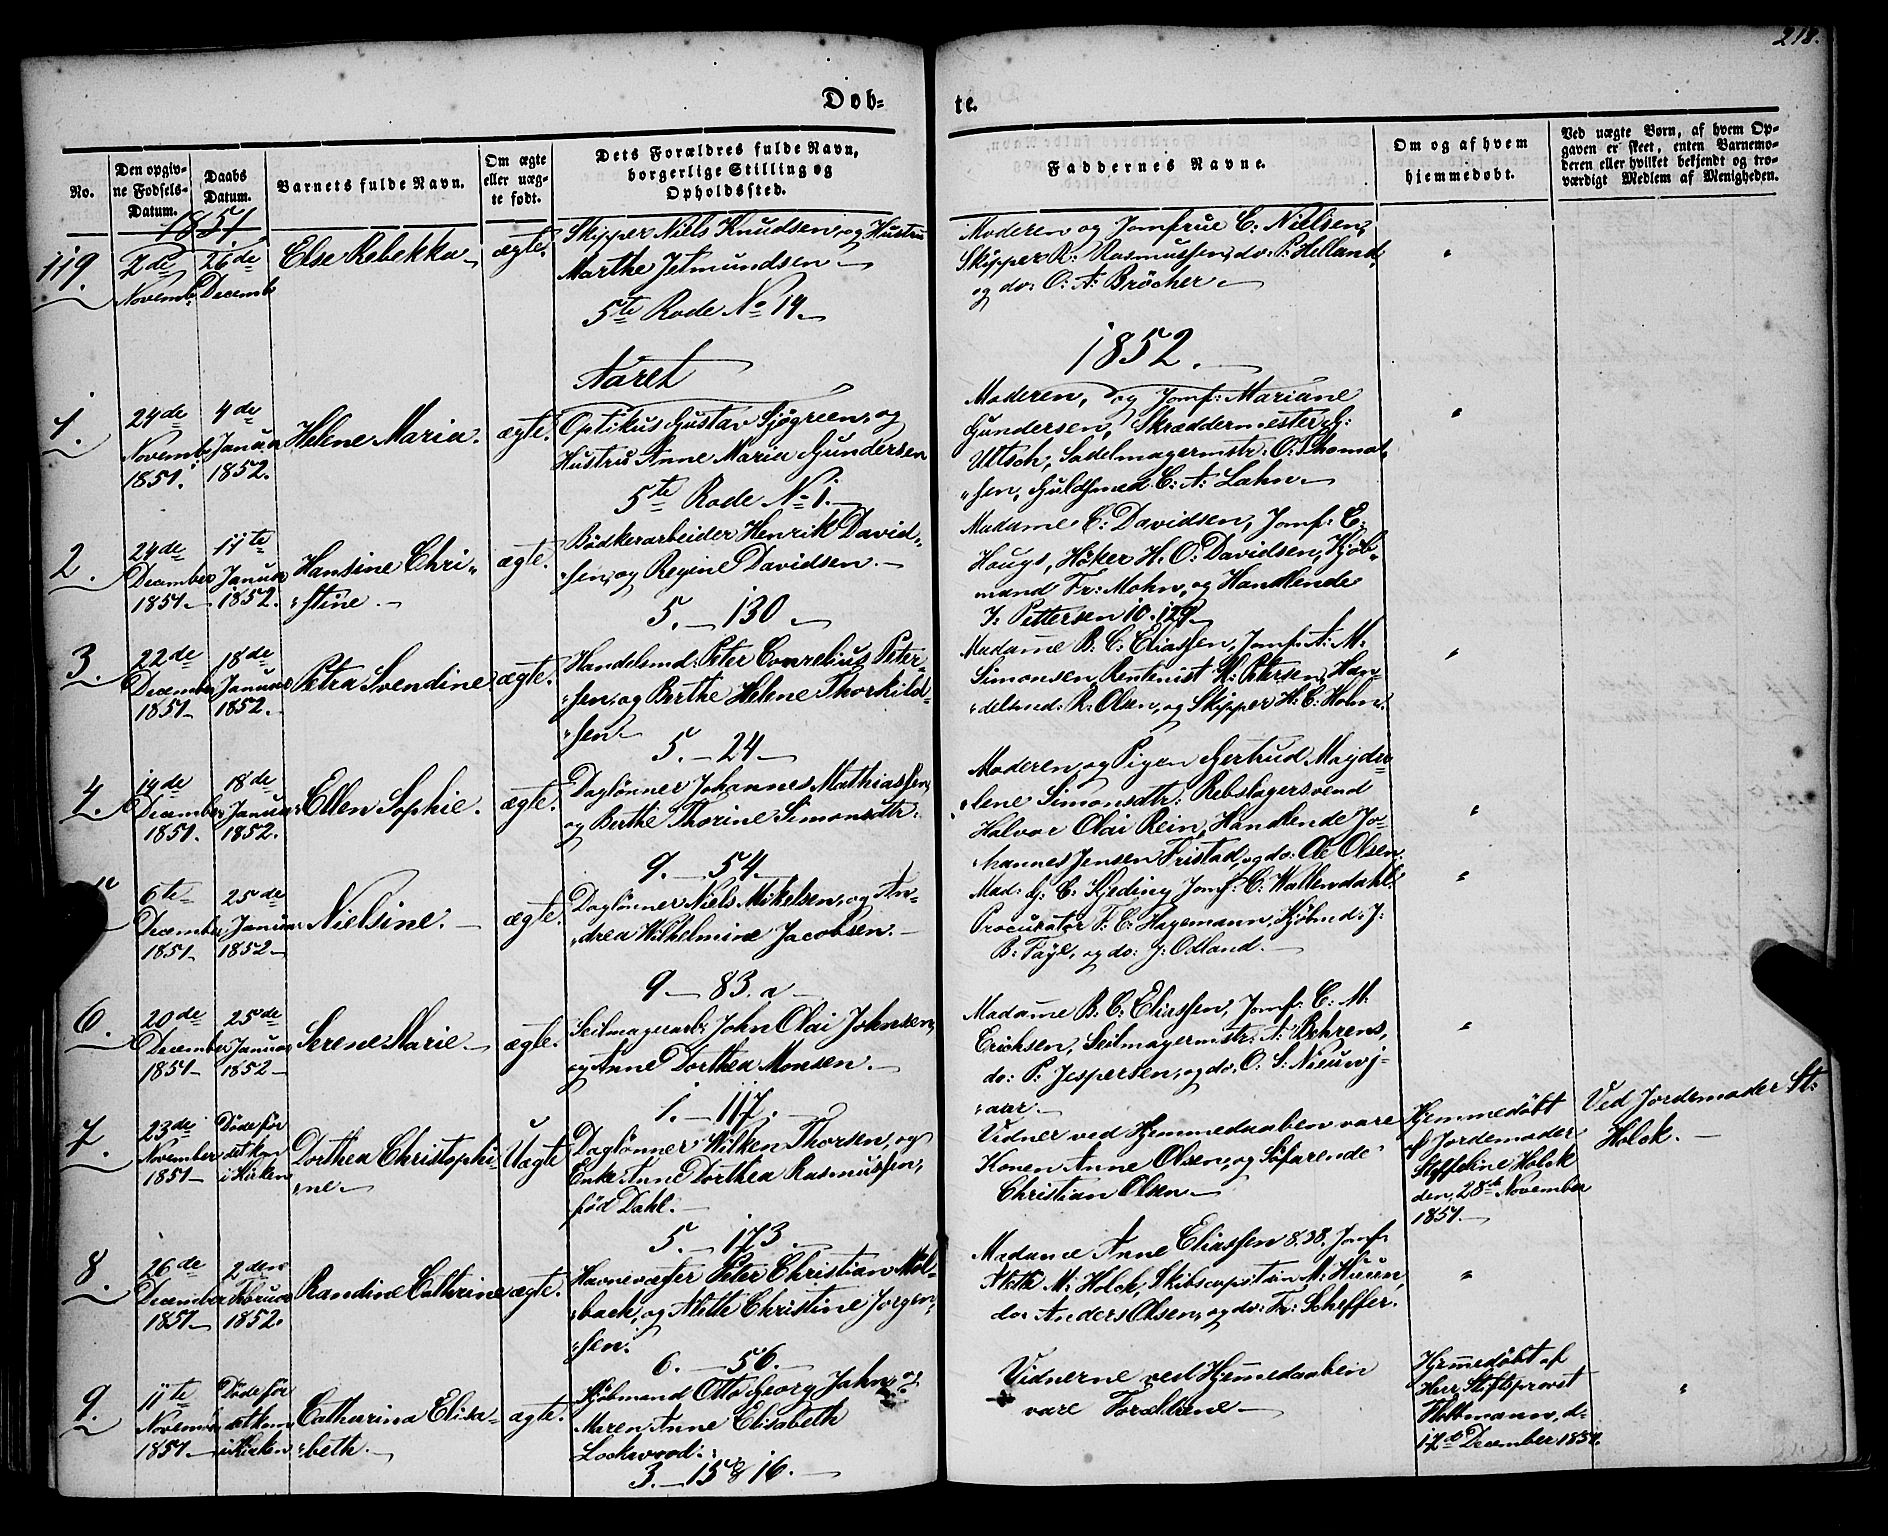 218.
Døb-
te.
No.
Den opgiv-
ne Fødsels-
Datum.
Daabs
Datum.
Barnets fulde Navn.
Om ægte
eller uæg-
te født.
Dets Forældres fulde Navn,
borgerlige Stilling og
Opholdssted.
Faddernes Navne.
Om og af hvem
hjemmedøbt.
Ved uægte Børn, af hvem Op-
gaven er skeet, enten Barnemo-
deren eller hvilket bekjendt og tro-
værdigt Medlem af Menigheden.
1851
119.
2de
Novemb:
26de
Decemb
Else Rebekka
ægte.
Skipper Niels Knudsen, og Hustru
Marthe Jetmundsen
5te Rode No 14.
Moderen og Jomfrue C. Nielsen,
Skipper R. Rasmussen, do. P. Helland,
og do: O. A. Bröcher.
"
Aaret
1852.
1.
24de
Novemb:
1851.
4de
Januar
1852.
Helene Maria.
ægte.
Optikus Gustav Sjøgreen, og
Hustru Anne Maria Gundersen
5te Rode No 1.
Moderen, og Jomf: Mariane
Gundersen, Skræddermester G:
Ultsch, Sadelmagermstr: O. Thomas-
sen, Guldsmed C. A. Lahn.
"
2.
24de
December
1851.
11te
Januar
1852.
Hansine Chri-
stine.
ægte.
Bødkerarbeider Henrik David-
sen, og Regine Davidsen.
5. 130
Madame C. Davidsen, Jomf: C.
Houge, Høker H. O. Davidsen, Kjøb-
mand Fr: Mohn, og Handlende
J. Pettersen 10.129.
3.
22de
December
1851
18de
Januar
1852.
Petra Svendine
ægte.
Handelsmd: Peter Cornelius Peter-
sen, og Berthe Helene Thorkild-
sen
5. 24
Madame B. C. Eliassen, Jomf: A. M.
Simonsen, Rentenist K. Petersen, Han-
delsmd: R. Olsen, og Skipper H. C. Holm.
"
4.
19de
December
1851.
18de
Januar
1852.
Ellen Sophie.
ægte.
Daglønner Johannes Mathiassen,
og Berthe Thorine Simonsdtr:
9. 54.
Moderen, og Pigen Gertrud Magda-
lene Simonsdtr: Rebslagersvend
Halvor Olai Rein, Handlende Jo-
hannes Jensen Fristad, og do: Ole Olsen.
"
6te
December
1851
25de
Januar
1852
Nielsine.
ægte.
Daglønner Niels Mikelsen, og An-
drea Wilhelmine Jacobsen.
9 83. a
Mad: G. C. Kjeding, Jomf: C. Wallendahl,
Procurator F. C. Hagemann, Kjøbmd: J.
B. Faye, og do: J. Odland.
"
6.
20de
December
1851
25de
Januar
1852
Serene Marie
ægte.
Seilmagerarb: John Olai Johnsen,
og Anne Dorthea Monsen.
1. 117.
Madame B. C. Eliassen, Jomf: C. M.
Erichsen, Seilmagermstr: A. Behrens,
do: P. Jespersen, og do. O. S. Nieuwj-
aar.
"
7.
23de
November
1851
Døde før
det kom
i Kirken
Dorthea Christophi-
ne
Uægte
Daglønner Wilken Thorsen, og
Enke Anne Dorthea Rasmussen,
fød Dahl.
5. 173.
Vidner ved Hjemmedaaben vare
Konen Anne Olsen, og Søfarende
Christian Olsen
Hjemmedøbt
af Jordemoder
Steffeline Holck
den 28de November
1851.
Ved Jordemoder St:
Holck.
8.
26de
December
1851
2den
Februar
1852.
Randine Cathrine
ægte.
Havnevægter Peter Christian Mol-
back, og Aleth Christine Jørgen-
sen.
6. 56.
Madame Anne Eliassen 8.38. Jomf:
Aleth M. Holck, Skibscapitain M. Huun,
do: Anders Olsen, og do: Fr: Scheffer.
"
9.
11te
Novemb
1851
Døde før
det kom
i Kirken
Catharina Elisa-
beth.
ægte.
Kjøbmand Otto Georg Jahn, og
Maren Anne Elisabeth
Lockwood:
3. 15 & 16.
Vidnerne ved Hjemmedaaben
vare Forældrene
Hjemmedøbt af
Herr Stiftsprovst
d.
17de December 1851.
"